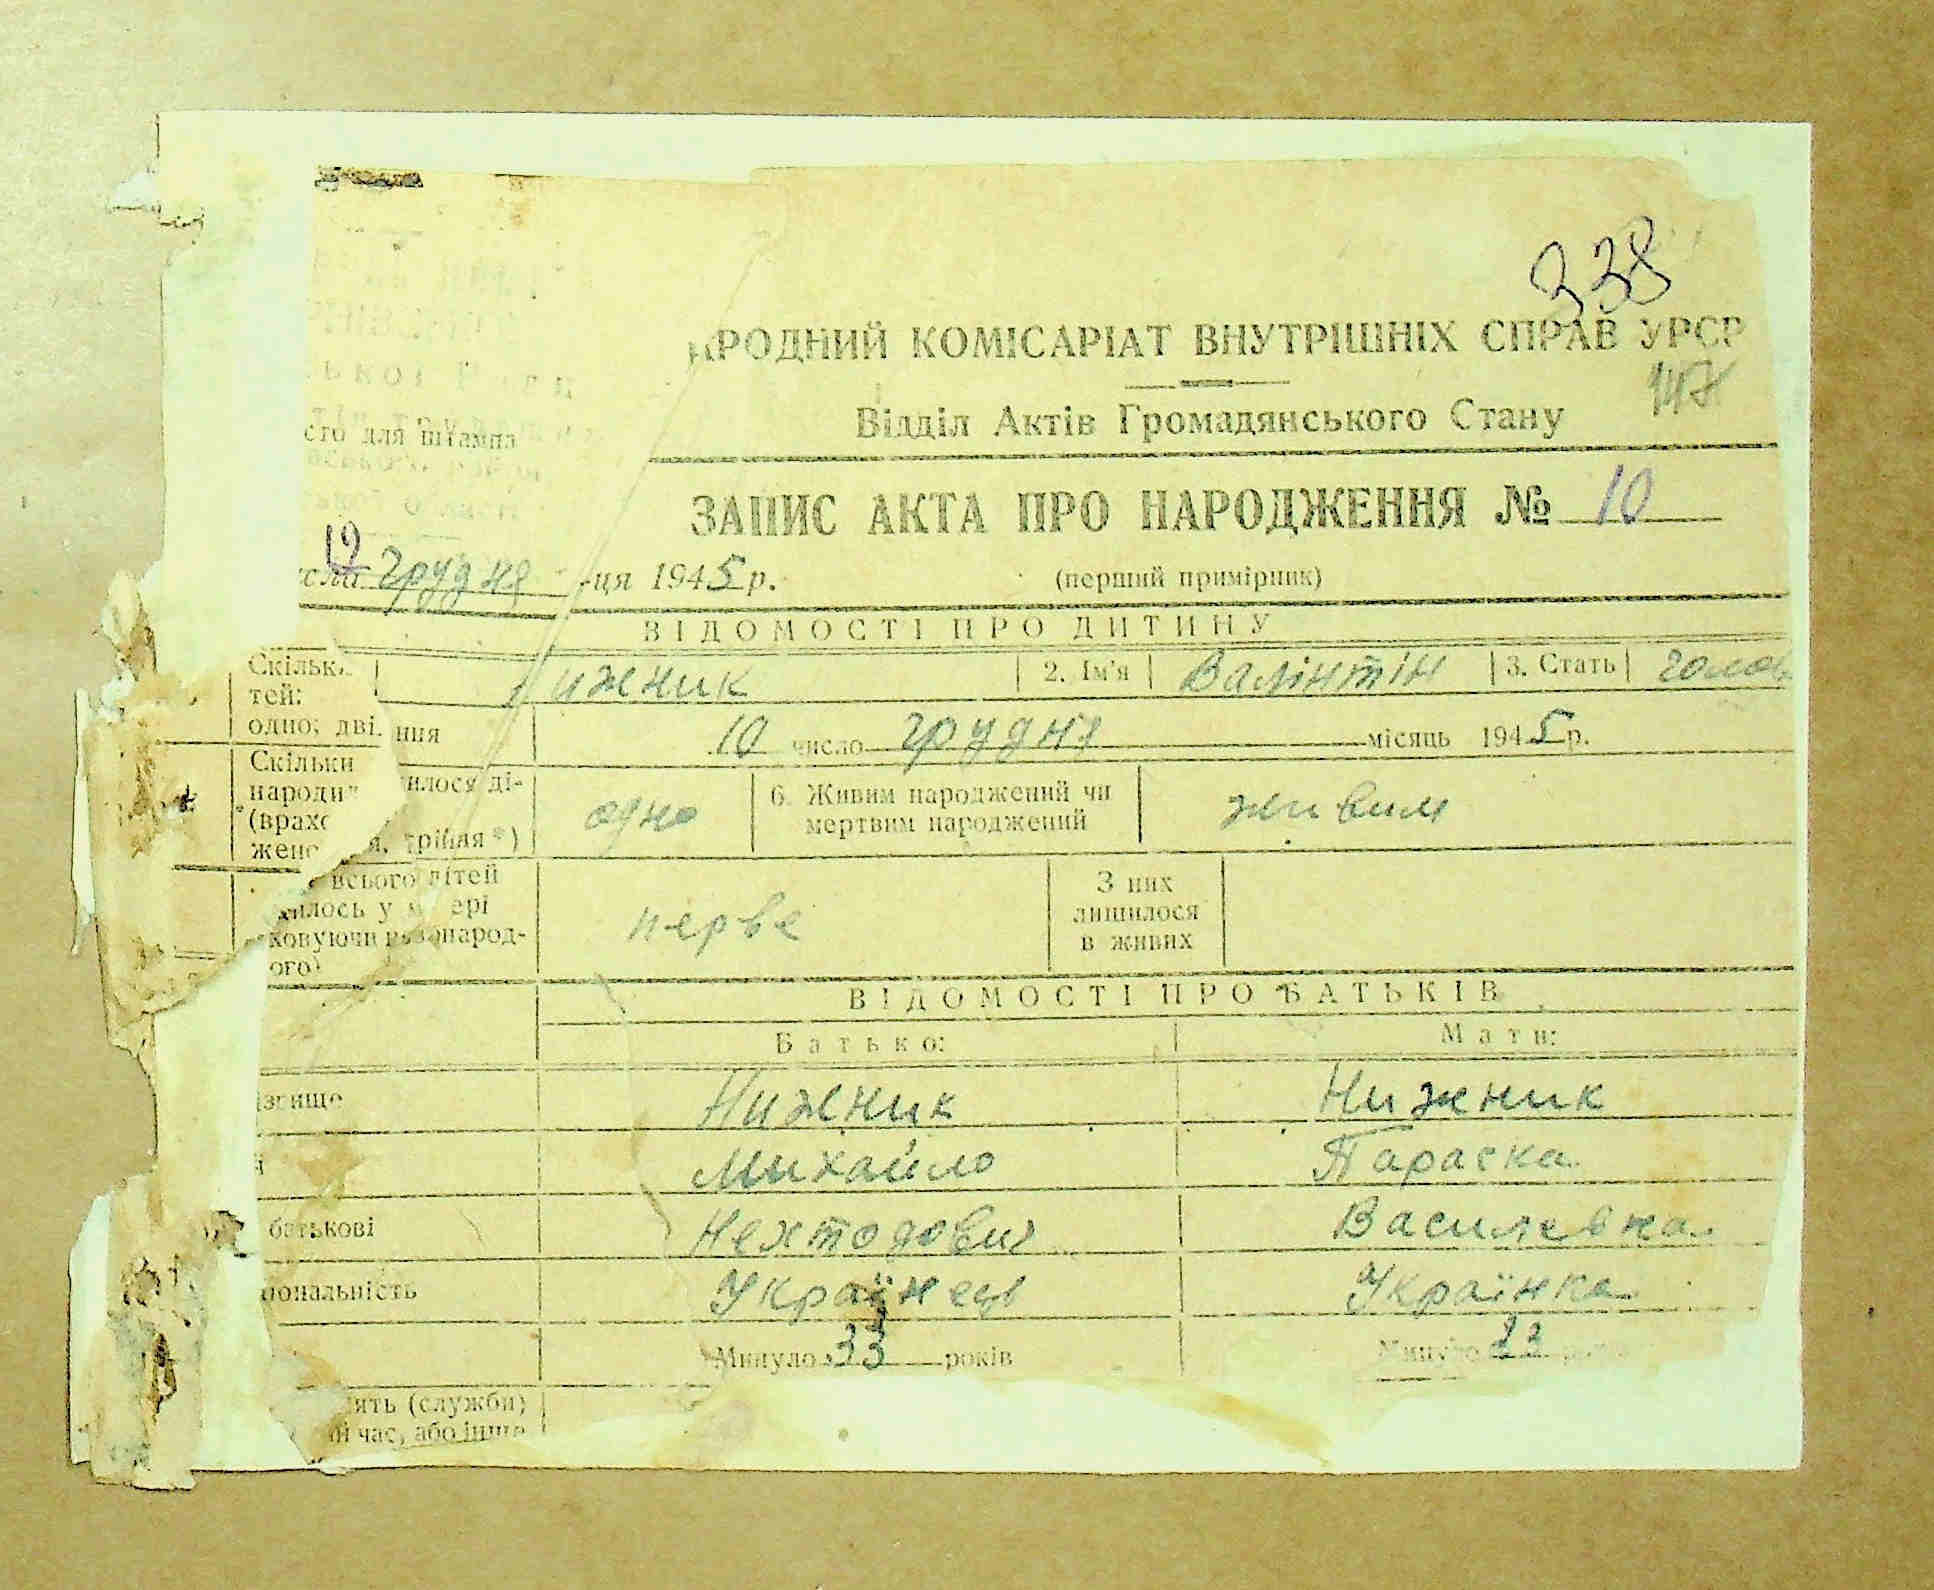 338
РОДНИЙ КОМІСАРІАТ ВНУТРІШНІХ СПРАВ УРСР
147
Відділ Актів Громадянського Стану
сто для штампа
ЗАПИС АКТА ПРО НАРОДЖЕННЯ № 10
19
грудня -ця 1945 р. (перший примірник)
ВІДОМОСТІ ПРО ДИТИНУ
ижник 2. Ім'я Валінтін 3. Стать голов
Скільки
тей:
одно; дві.
ння 10 число грудня місяць 1945 р.
Скільки
народи
(врахо
жено
илося ді-
трійня*) одно 6. Живим народжений чи
мертвим народжений живим
всього дітей
илось у ері
ковуючи народ-
ого) перве З них
лишилося
в живих
ВІДОМОСТІ ПРО БАТЬКІВ
Батько: Мати:
ізвище Нижник Нижник
Михайло Параска
батькові Нехтодович Василевна
іональність Українец Українка
Минуло 33 років Минуло 23
ять (служби)
ий час, або інше